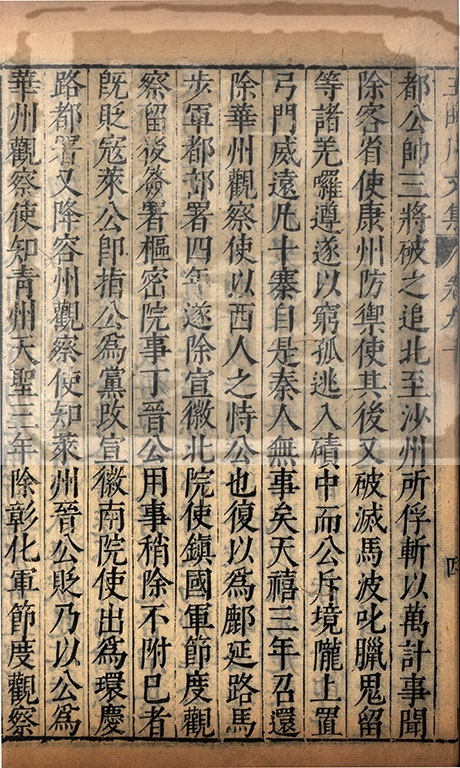 王臨川文集　卷九十　四
都公帥三將破之追北至沙州所俘斬以萬計事聞
除客省使康州防禦使其後又破滅馬波叱臘鬼留
等諸羌囉遵遂以窮孤逃入磧中而公斥境隴上置
弓門威遠凡十寨自是秦人無事矣天禧三年召還
除華州觀察使以西人之恃公也復以為鄜延路馬
步軍都部署四年遂除宣徽北院使鎮國軍節度觀
察留後簽署樞密院事丁晉公用事稍除不附巳者
既貶宼萊公卽指公為黨改宣徽南院使出為環慶
路都署又降容州觀察使知萊州晉公貶乃以公為
華州觀察使知青州天聖三年除彰化軍節度觀察